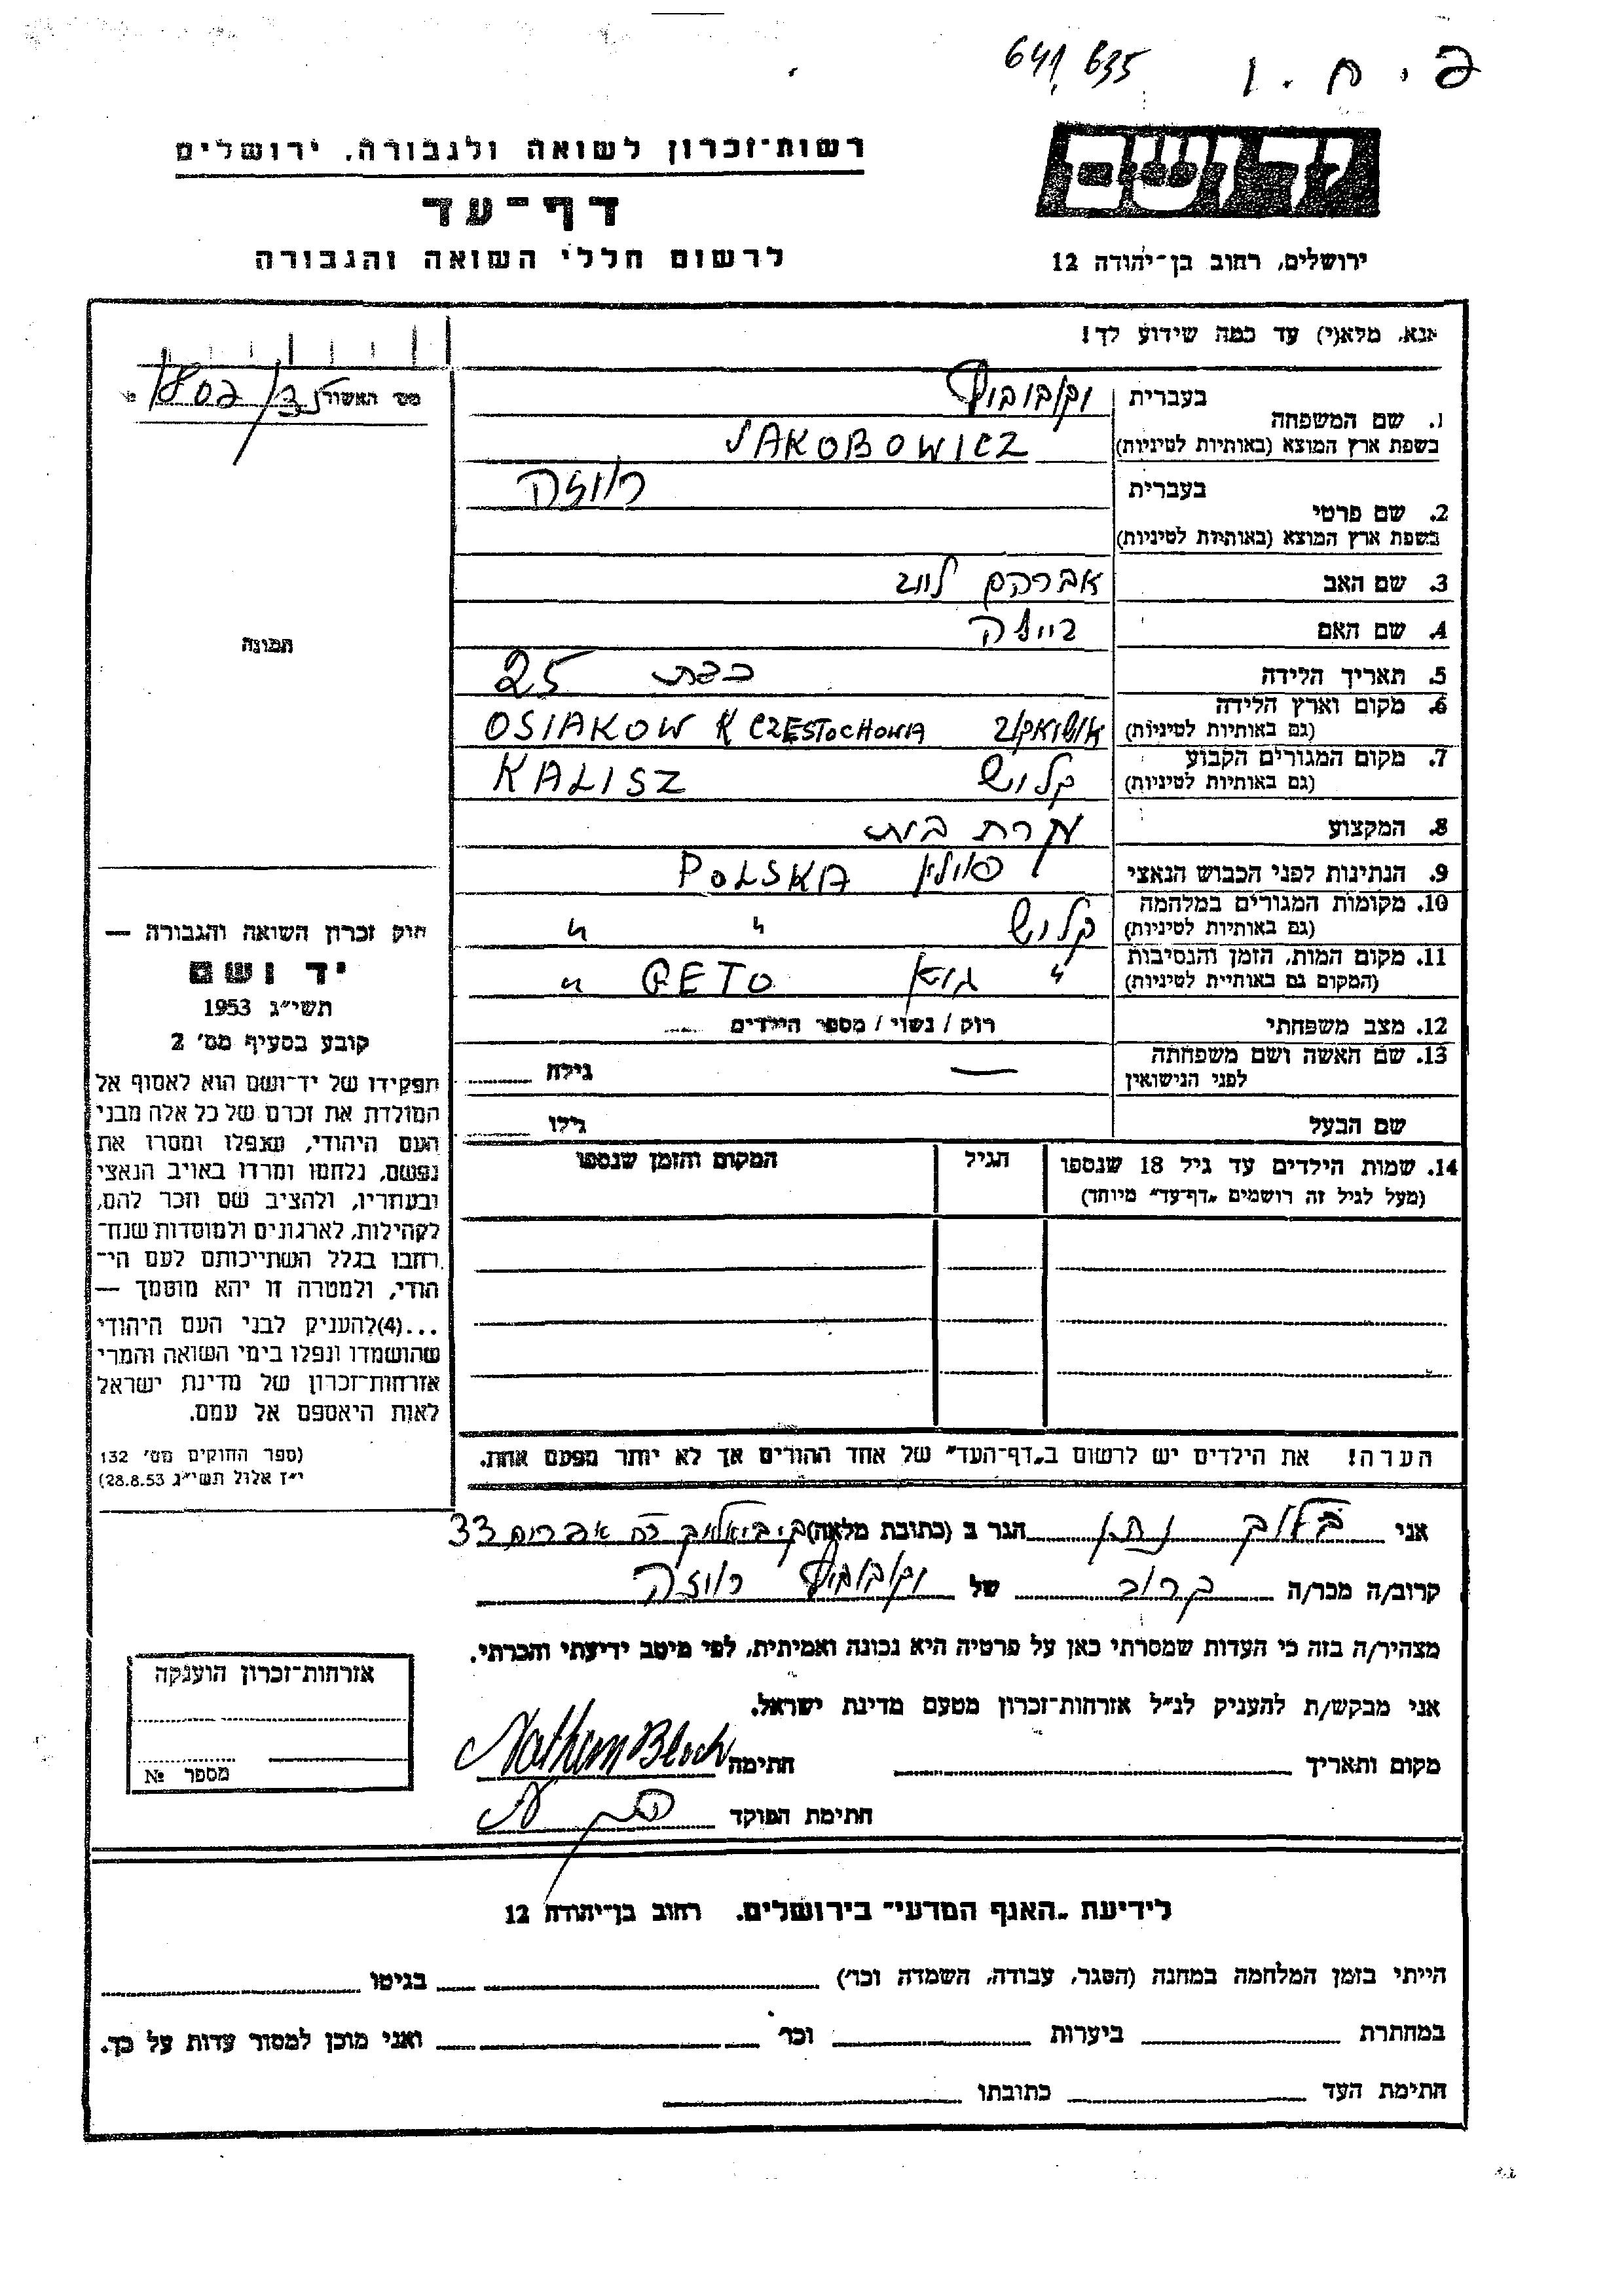 641,635
רשות־זכרון לשואה ולגבורה, ירושלים
דף־עד
לרשום חללי השואה והגבורה
ירושלים, רחוב בן־יהודה 12
אנא, מלא(י) עד כמה שידוע לך!
מס׳ האשור
1. שם המשפחה
בעברית
יעקובוביץ
בשפת ארץ המוצא (באותיות לטיניות)
JAKOBOWICZ
2. שם פרטי
בעברית
רוזה
בשפת ארץ המוצא (באותיות לטיניות)
3. שם האב
אברהם לוי
4. שם האם
ביילה
5. תאריך הלידה
כבת 25
6. מקום וארץ הלידה
(גם באותיות לטיניות)
OSIAKOW K CZESTOCHOWA
7. מקום המגורים הקבוע
(גם באותיות לטיניות)
קליש KALISZ
8. המקצוע
עקרת בית
9. הנתינות לפני הכבוש הנאצי
פולין POLSKA
10. מקומות המגורים במלחמה
(גם באותיות לטיניות)
קליש " "
11. מקום המות, הזמן והנסיבות
(המקום גם באותיות לטיניות)
" גיטו GETO "
12. מצב משפחתי
רוק / נשוי / מספר הילדים
13. שם האשה ושם משפחתה
לפני הנישואין
— גילה
שם הבעל
גילו
14. שמות הילדים עד גיל 18 שנספו
(מעל לגיל זה רושמים „דף־עד״ מיוחד)
הגיל
המקום והזמן שנספו
הערה! את הילדים יש לרשום ב„דף־העד״ של אחד ההורים אך לא יותר מפעם אחת.
תמונה
חוק זכרון השואה והגבורה —
יד ושם
תשי״ג 1953
קובע בסעיף מס׳ 2
תפקידו של יד־ושם הוא לאסוף אל
המולדת את זכרם של כל אלה מבני
העם היהודי, שנפלו ומסרו את
נפשם, נלחמו ומרדו באויב הנאצי
ובעוזריו, ולהציב שם וזכר להם,
לקהילות, לארגונים ולמוסדות שנח־
רבו בגלל השתייכותם לעם הי־
הודי, ולמטרה זו יהא מוסמך —
...(4)להעניק לבני העם היהודי
שהושמדו ונפלו בימי השואה והמרי
אזרחות־זכרון של מדינת ישראל
לאות היאספם אל עמם.
(ספר החוקים מס׳ 132
י״ז אלול תשי״ג 28.8.53)
אני בלוך נתן הגר ב (כתובת מלאה) 33
קרוב/ה מכר/ה קרוב של יעקובוביץ רוזה
מצהיר/ה בזה כי העדות שמסרתי כאן על פרטיה היא נכונה ואמיתית, לפי מיטב ידיעתי והכרתי.
אני מבקש/ת להעניק לנ״ל אזרחות־זכרון מטעם מדינת ישראל.
מקום ותאריך חתימה Nathan Bloch
חתימת הפוקד
אזרחות־זכרון הוענקה
מספר №
לידיעת „האגף המדעי״ בירושלים. רחוב בן־יהודה 12
הייתי בזמן המלחמה במחנה (הסגר, עבודה, השמדה וכו׳) בגיטו
במחתרת ביערות וכו׳ ואני מוכן למסור עדות על כך.
חתימת העד כתובתו